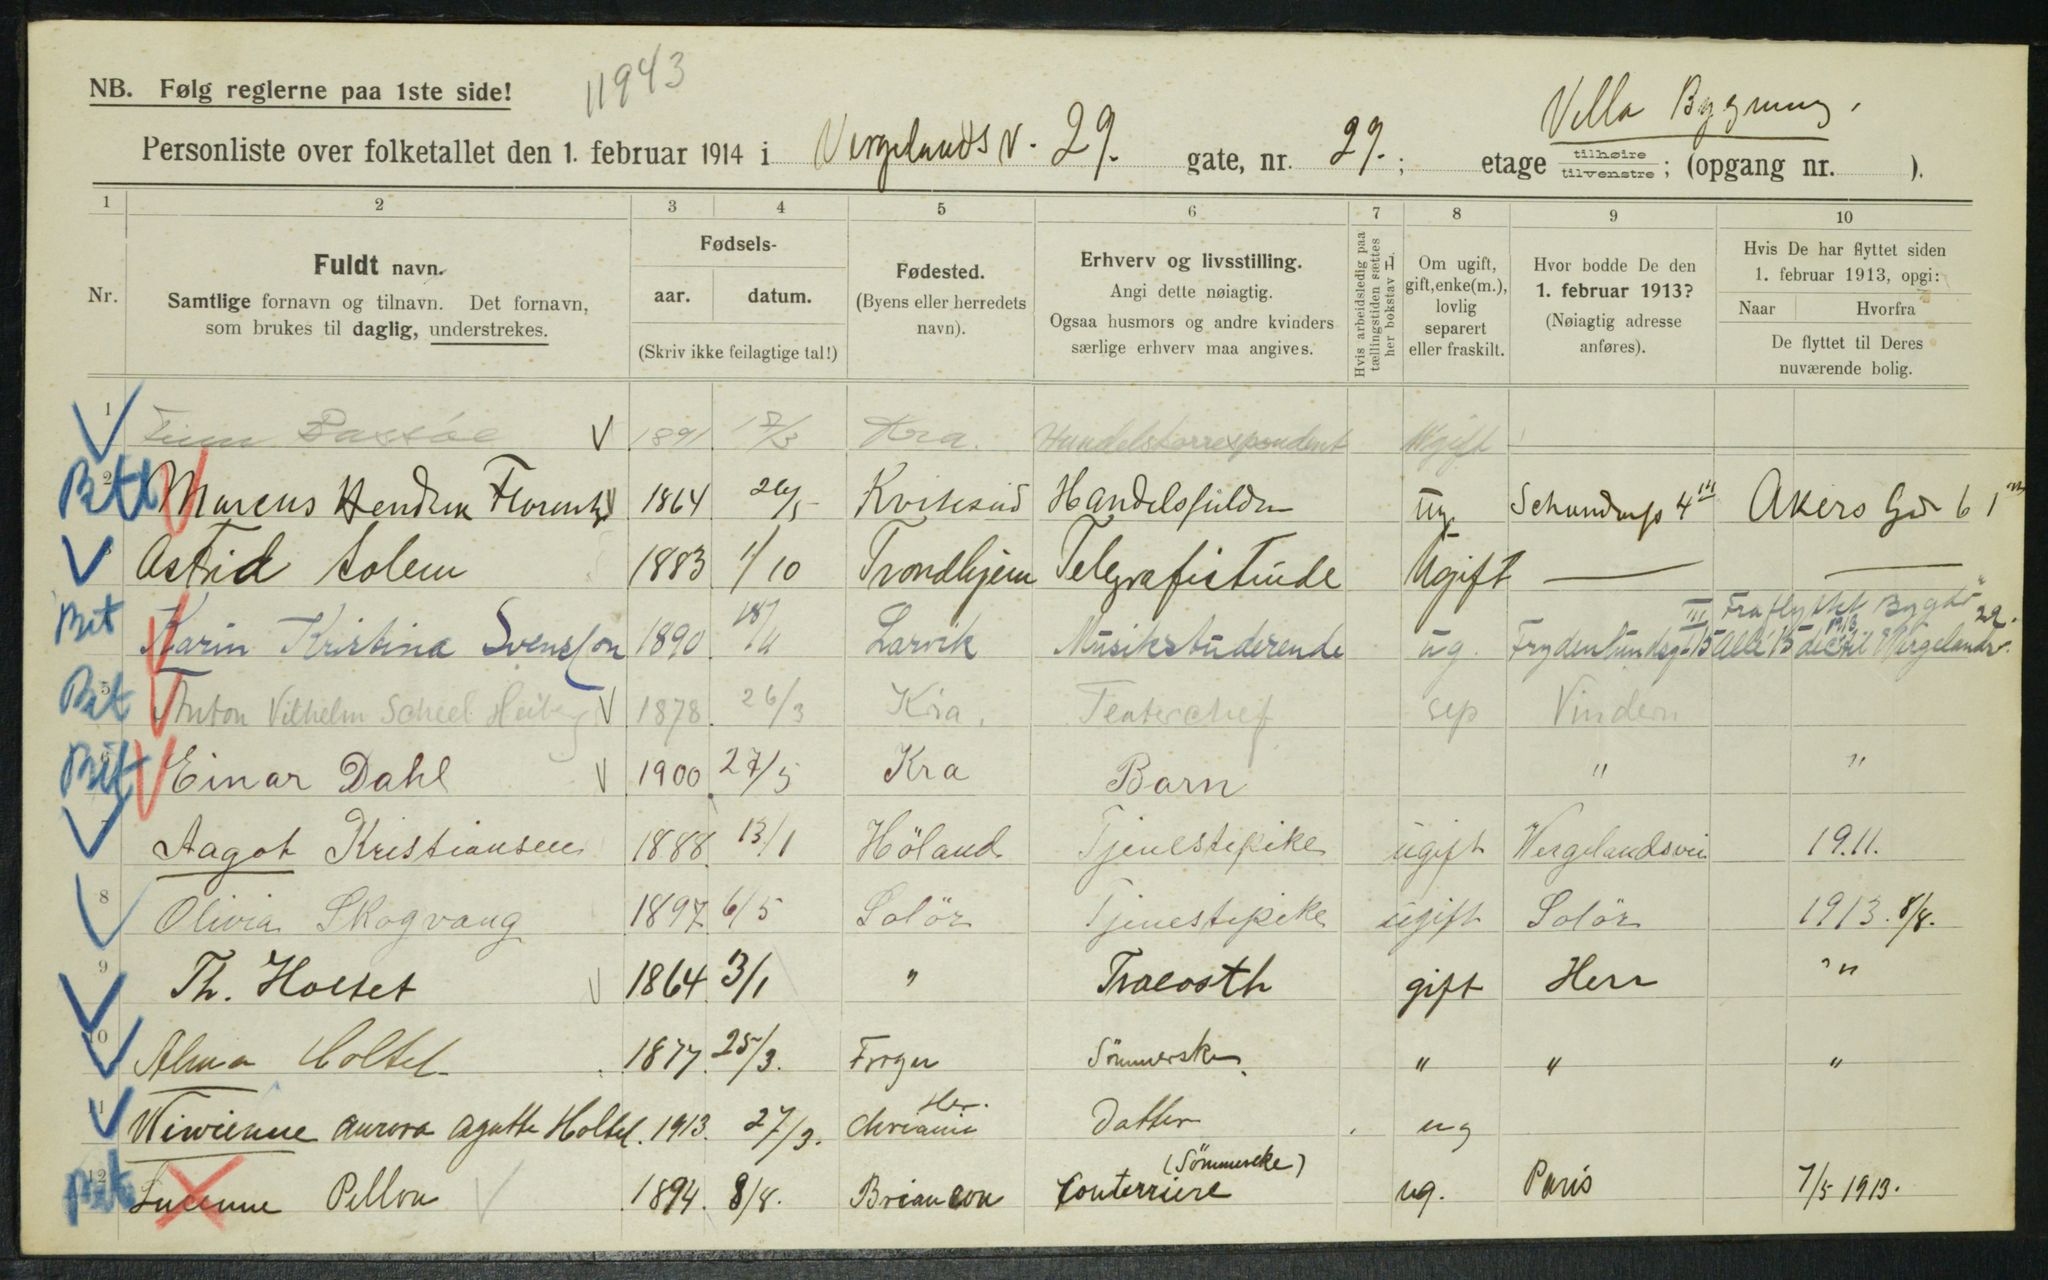 11943
NB. Følg reglerne paa 1ste side!
Villa Bygning.
Personliste over folketallet den 1. februar 1914 i Vergelands v. 29. gate, nr. 29.; etage tilhøire tilvenstre; (opgang nr. ).
1 2 3 4 5 6 7 8 9 10
Nr.
Fuldt navn.
Samtlige fornavn og tilnavn. Det fornavn,
som brukes til daglig, understrekes.
Fødsels-
aar. datum.
(Skriv ikke feilagtige tal!)
Fødested.
(Byens eller herredets
navn).
Erhverv og livsstilling.
Angi dette nøiagtig.
Ogsaa husmors og andre kvinders
særlige erhverv maa angives.
Hvis arbeidsledig paa
tællingstiden sættes
her bokstav L.
Om ugift,
gift, enke(m.),
lovlig
separert
eller fraskilt.
Hvor bodde De den
1. februar 1913?
(Nøiagtig adresse
anføres).
Hvis De har flyttet siden
1. februar 1913, opgi:
Naar Hvorfra
De flyttet til Deres
nuværende bolig.
1 Finn 1891 17/3 Kra. Handelskorrespondent Ugift
Bet 2 Marcus Hendrik 1864 26/5 Kviteseid ug. Akers Gd 61
3 Astrid Solem 1883 1/10 Trondhjem Telegrafistinde Ugift — —
Fraflyttet Bygdø
Bet Karin Kristina Svensson 1890 Larvik Musikstuderende ug. Frydenlundsg. 15 III Allé 15 dec. 1913 til Wergelandsv. 29.
Bet 5 Anton Vilhelm Scheel Heiberg 1878 26/3 Kra. Teaterchef sep Vindern
Bet 6 Einar Dahl 1900 27/5 Kra Barn " "
7 Aagot Kristiansen 1888 13/1 Höland Tjenestepike ugift Wergelandsvei 1911.
8 Olivia Skogvang 1897 6/5 Solör Tjenestepike ugift Solör 1913. 8/8.
9 Th. Holtet 1864 3/1 " gift Her "
10 Alma Holtet 1877 25/3. Sömmerske " " "
11 Aurora Agatte Holtet. 1913. 27/3. Datter ug
Bet 12 Pellon 1894. 8/8. Briancon Couterriere (Sömmerske) ug. Paris 7/5 1913.